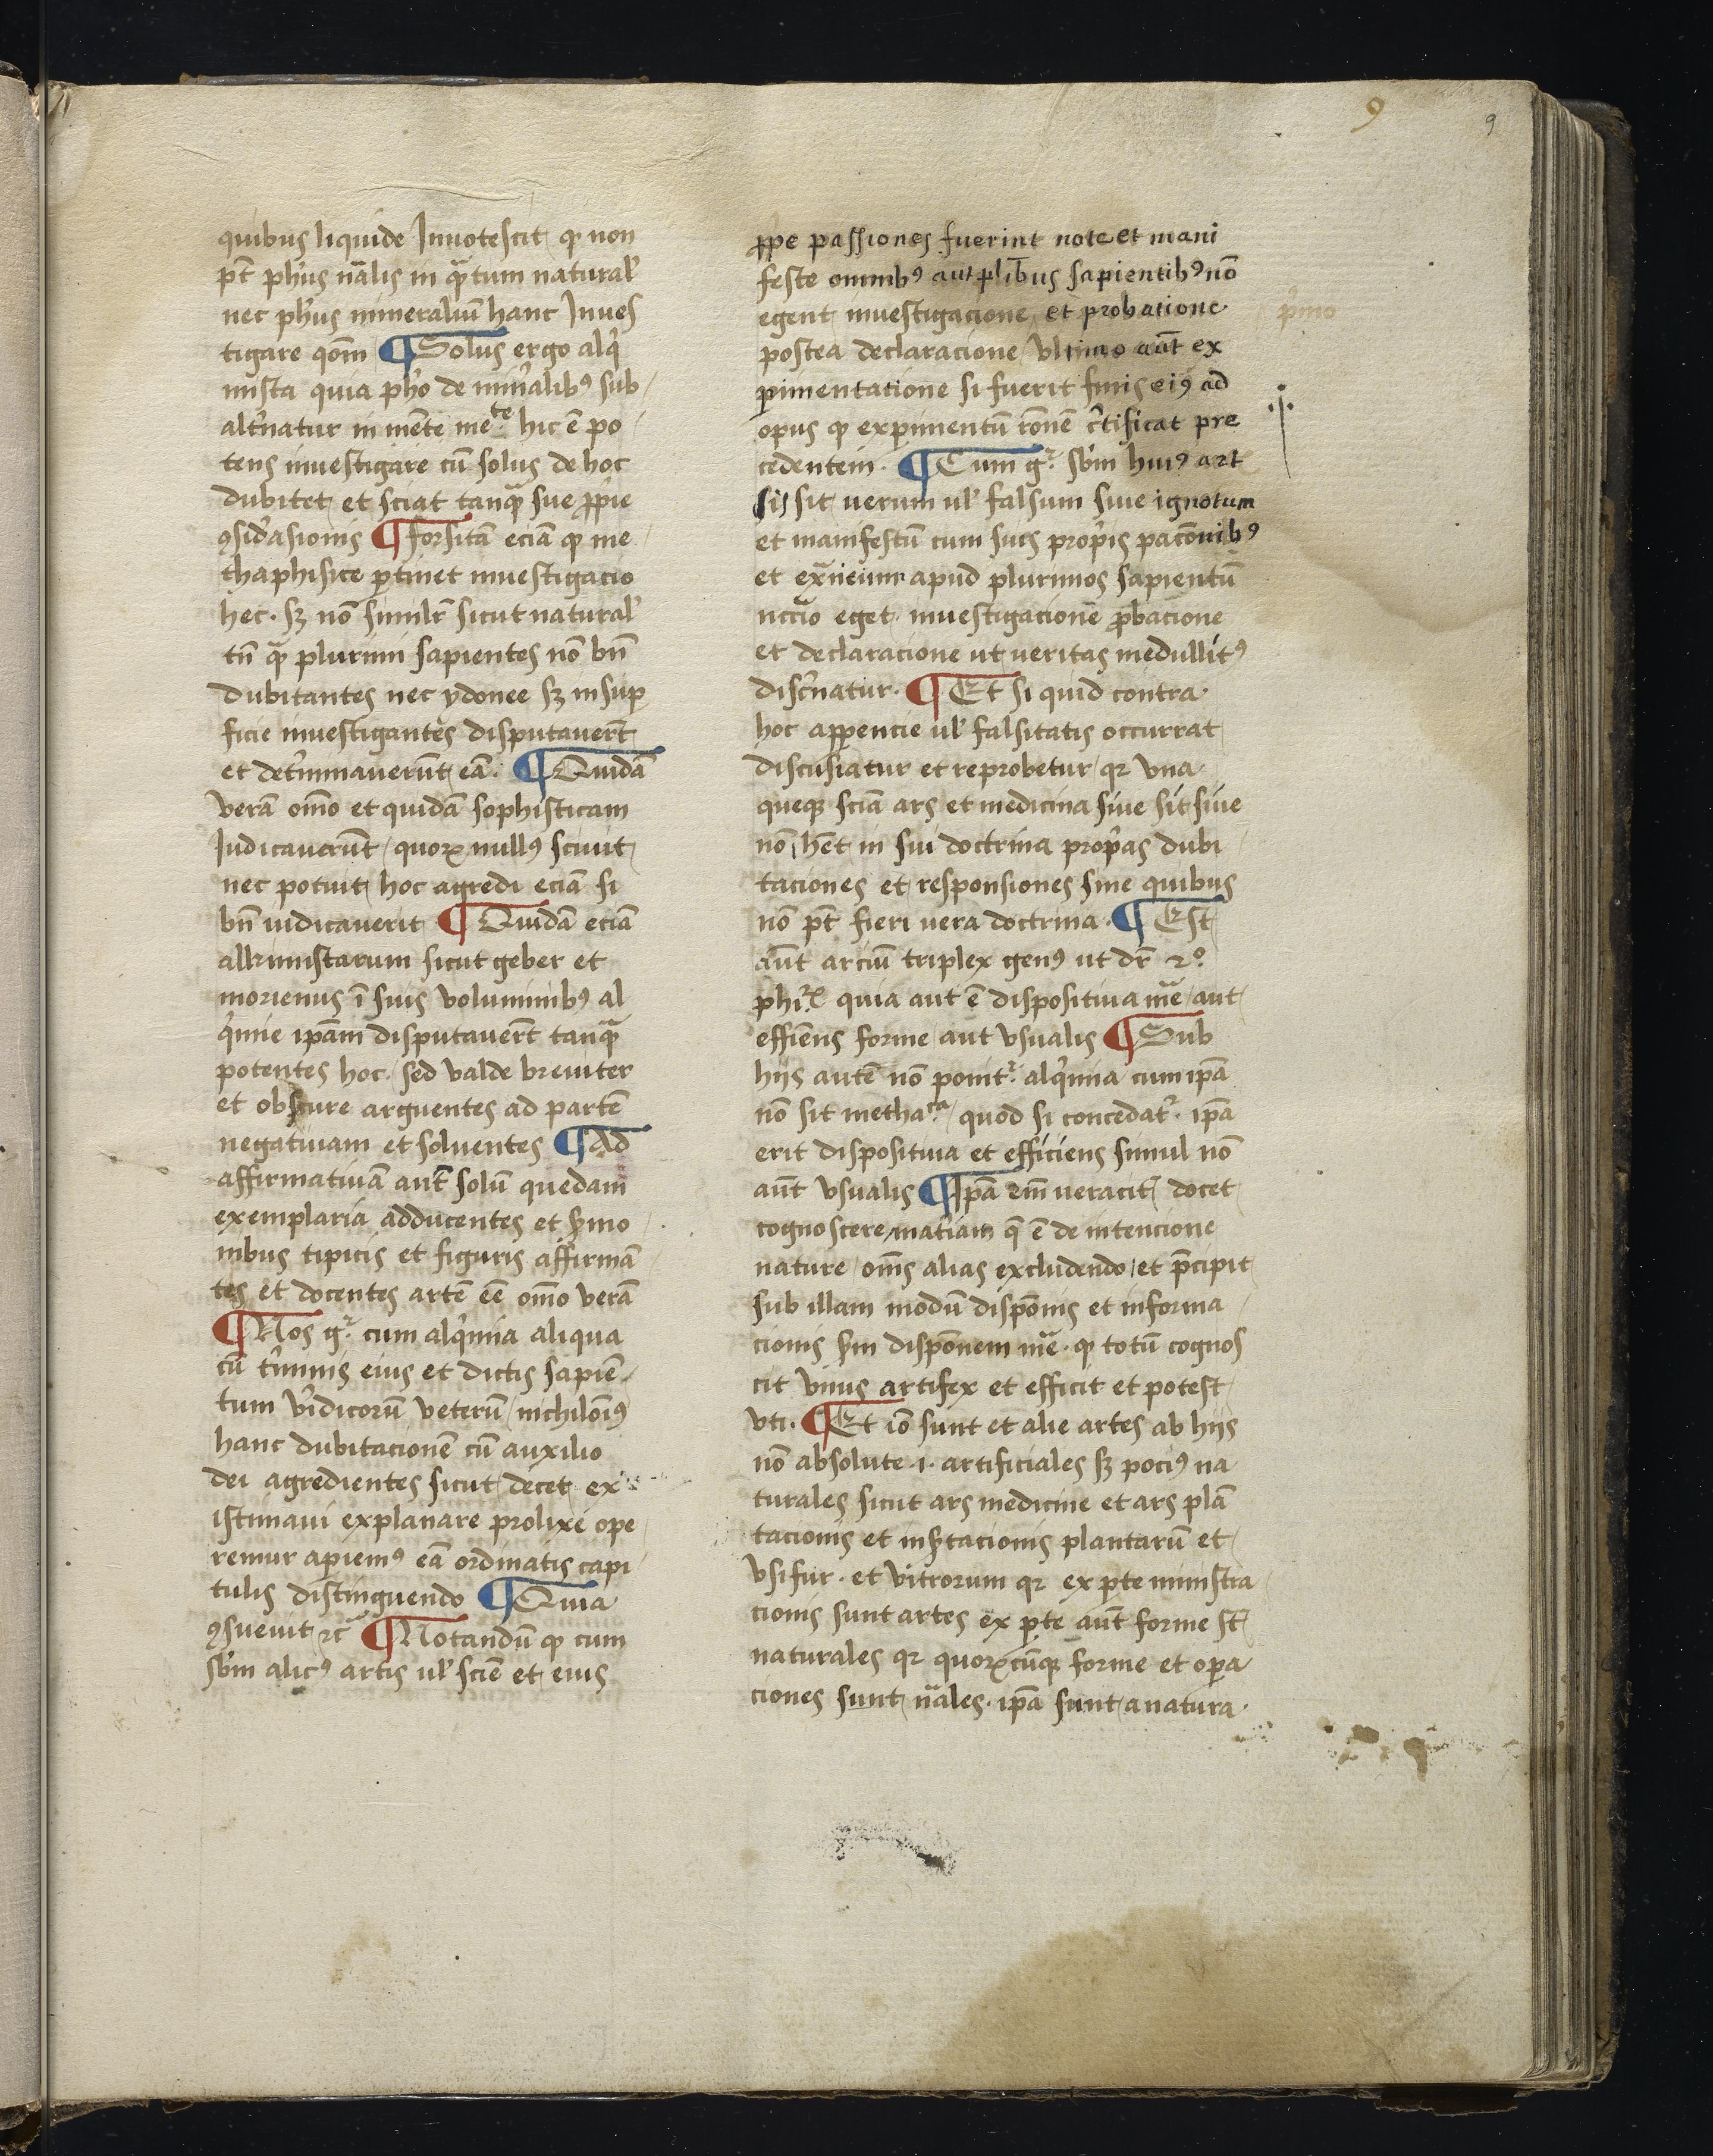 9
9
quibus liquide Innotescit qꝫ non
pt̄ phūs nālis in qᵃtum natural'
nec phūs mineraliū hanc Inues
tigare qōm ¶ Solus ergo alqͥ
mista quia pħo de min̄alibꝰ sub
alt̄natur in mēte meᵗᵉ hic ē po
tens inuestigare cū solus de hoc
dubitet et sciat tanqᵃ sue ꝓpͥe
ꝯsid̄asionis ¶ forsitā eciā qꝫ me
thaphisice ꝑtinet inuestigacio
hec. sꝫ nō simil̄r sicut natural'
tn̄ qᵃ plurimi sapientes nō bn̄
dubitantes nec ydonee sꝫ in suꝑ
ficie inuestigantes disputauer̄t
et det̄minauerūt eā. ¶ Quidā
verā om̄o et quidā sophisticam
Iudicauerūt quoꝝ nullꝰ sciuit
nec potuit hoc agredi eciā si
bn̄ iudicauerit ¶ Quidā eciā
alkimistarum sicut geber et
morienus ī suis voluminibꝰ al
qͥmie ip̄am disputauer̄t tanqᵃ
potentes hoc. sed valde breuiter
et obscure arguentes ad partē
negatiuam et soluentes ¶ Ad
affirmatiuā aut̄ solū quedam
exemplaria adducentes et ẜmo
nibus tipicis et figuris affirmā
tes et docentes artē eē om̄o verā
¶ Nos gͬ cum alqͥmia aliqua
cū t̄minis eius et dictis sapiē
tum v̄idicorū veterū nichilōiꝰ
hanc dubitacionē cū auxilio
dei agredientes sicut decet ex
istimaui explanare prolixe ope
remur apiemꝰ eā ordinatis capi
tulis distinguendo ¶ Quia
ꝯsueuit ⁊c̄ ¶ Notandū qꝫ cum
sb̄m alicꝰ artis ul' scīe et eius
ꝓpͥe passiones fuerint note et mani
feste omnibꝰ aut pl̄ibus sapientibꝰ nō
egent inuestigacione et probatione
postea declaracione vltimo aūt ex
ꝑimentatione si fuerit finis eiꝰ ad
opus qꝫ exꝑimentū rōnē c̄tificat pre
cedentem. ¶ Cum gͬ sb̄m huiꝰ art
sis sit uerum ul' falsum siue ignotum
et manifestū cum sucs propͥis pac̄onibꝰ
et apud plurimos sapientū
nccͥo eget inuestigacionē ꝓbacione
et declaracione ut ueritas medullitꝰ
disc̄natur. ¶ Et si quid contra
hoc apꝑencie ul' falsitatis occurrat
discusiatur et reprobetur qꝛ vna
queqꝫ sciā ars et medicina siue sit siue
nō hēt in sui doctrina propͥas dubi
taciones et responsiones sine quibus
nō pt̄ fieri uera doctrina. ¶ Est
aūt arciū triplex genꝰ ut dr̄ 2º
phiꝝ quia aut ē dispositiua mᵃe aut
effiēns forme aut vsualis ¶ Sub
hijs autē nō ponitͬ alqͥmia cum ipā
nō sit methaᶜᵃ quod si concedatͬ. ipā
erit dispositiua et efficiens simul nō
aūt vsualis ¶ Ipā em̄ ueracit̄ docet
cognoscere mat̄iam q̄ ē de intencione
nature om̄s alias excludendo et p̄cipit
sub illam modū disp̄onis et informa
cionis ẜm disp̄onem mᵃe. qꝫ totū cognos
cit vnus artifex et efficit et potest
vti. ¶ Et iō sunt et alie artes ab hijs
nō absolute .i. artificiales sꝫ pociꝰ na
turales sicut ars medicine et ars plā
tacionis et inẜtacionis plantarū et
vsifur. et vitrorum qꝛ ex ꝑte ministra
cionis sunt artes ex ꝑte aūt forme st̄
naturales qꝛ quoꝝcūqꝫ forme et oꝑa
ciones sunt nᵃales. ipā sunt a natura.
pͥmo